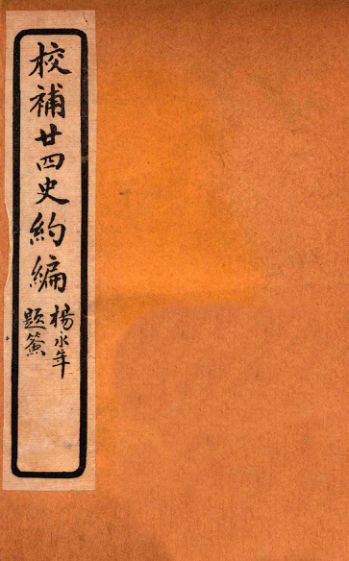 校補廿四史約編
楊永年
題簽